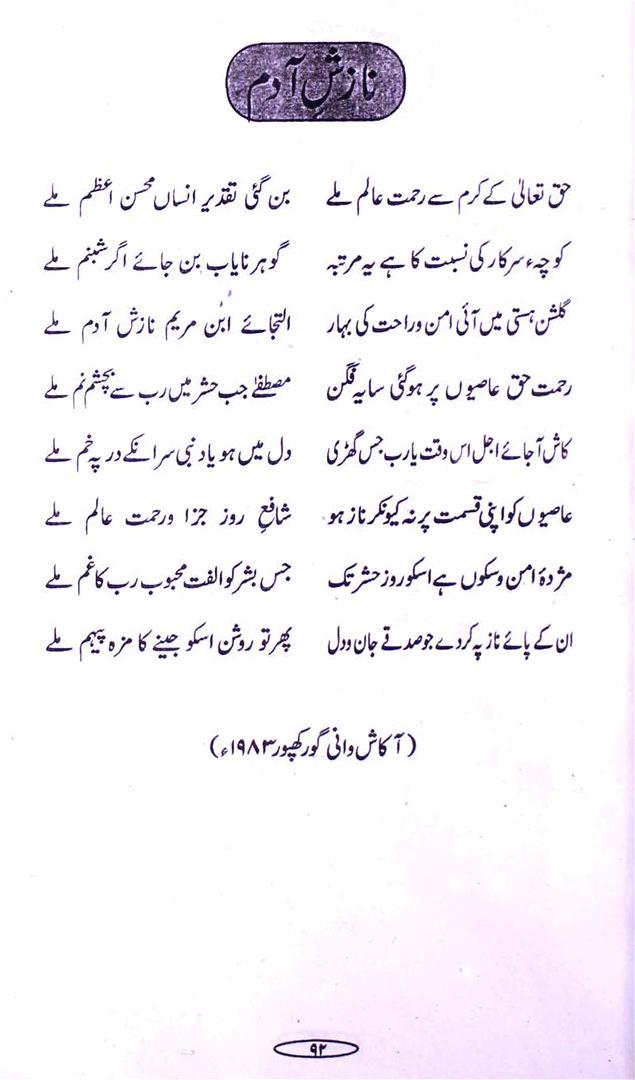 نازشِ آدم
حق تعالیٰ کے کرم سے رحمت عالم ملے بن گئی تقدیر انساں محسن اعظم ملے
کوچۂ سرکار کی نسبت کا ہے یہ مرتبہ گوہر نایاب بن جائے اگر شبنم ملے
گلشن ہستی میں آئی امن وراحت کی بہار التجائے ابن مریم نازش آدم ملے
رحمت حق عاصیوں پر ہوگئی سایہ فگن مصطفےٰ جب حشر میں رب سے بچشم نم ملے
کاش آجائے اجل اس وقت یارب جس گھڑی دل میں ہو یاد نبی سر انکے در پہ خم ملے
عاصیوں کو اپنی قسمت پر نہ کیونکر ناز ہو شافعِ روز جزا ورحمت عالم ملے
مژدۂ امن وسکوں ہے اسکو روز حشر تک جس بشر کو الفت محبوب رب کا غم ملے
ان کے پائے ناز پہ کردے جو صدقے جان ودل پھر تو روشن اسکو جینے کا مزہ پیہم ملے
(آکاش وانی گورکھپور ۱۹۸۳ء)
۹۲